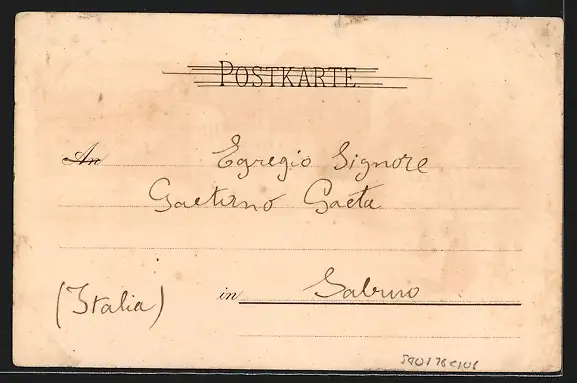 POSTKARTE
An Egregio Signore
Gaetano Gaeta
in Salerno
(Italia)